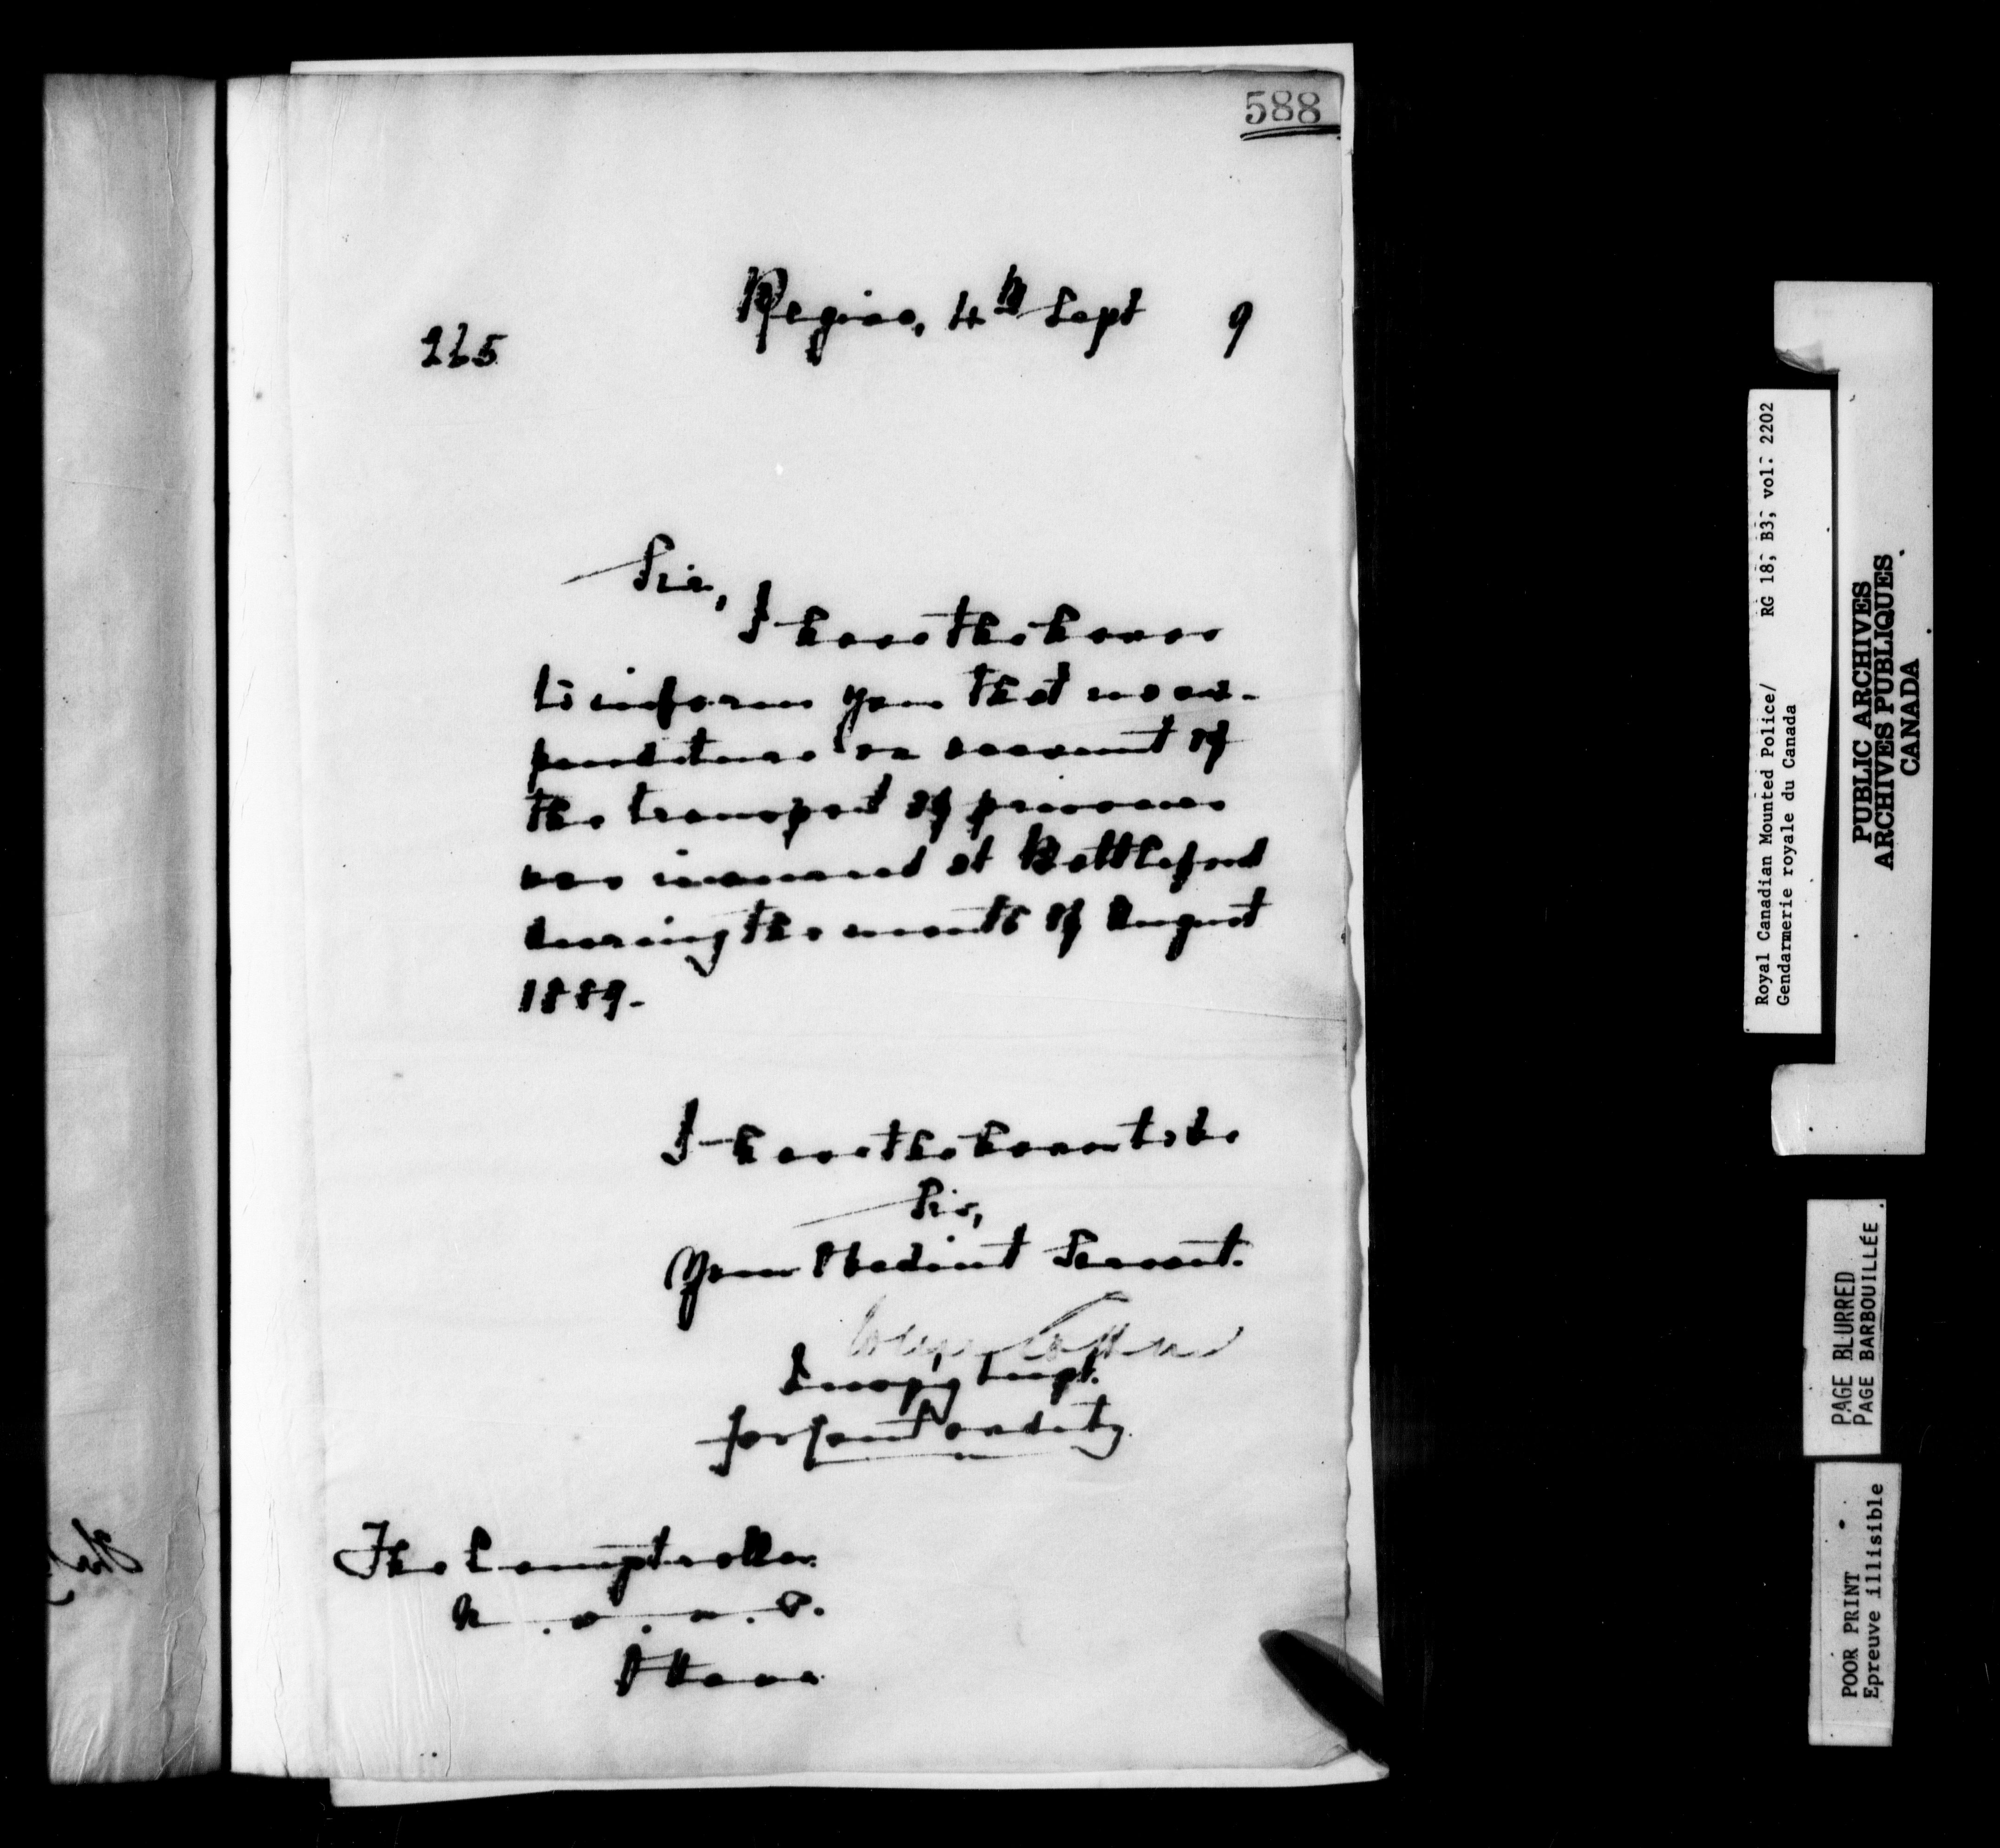 588
Regina, 4th Sept 9
265
Sir,
I have the honor
to inform you that no ex-
penditure on account of
the transport of prisoners
was incurred at Battleford
during the month of August
1889.-
I have the honor to be
Sir,
Your Obedient Servant.
Cotton
Supt.
The Comptroller.
N. W. M. P.
Ottawa.
Royal Canadian Mounted Police/ RG 18, B3, vol. 2202
Gendarmerie royale du Canada
PUBLIC ARCHIVES
ARCHIVES PUBLIQUES
CANADA
PAGE BLURRED
PAGE BARBOUILLÉE
POOR PRINT
Epreuve illisible